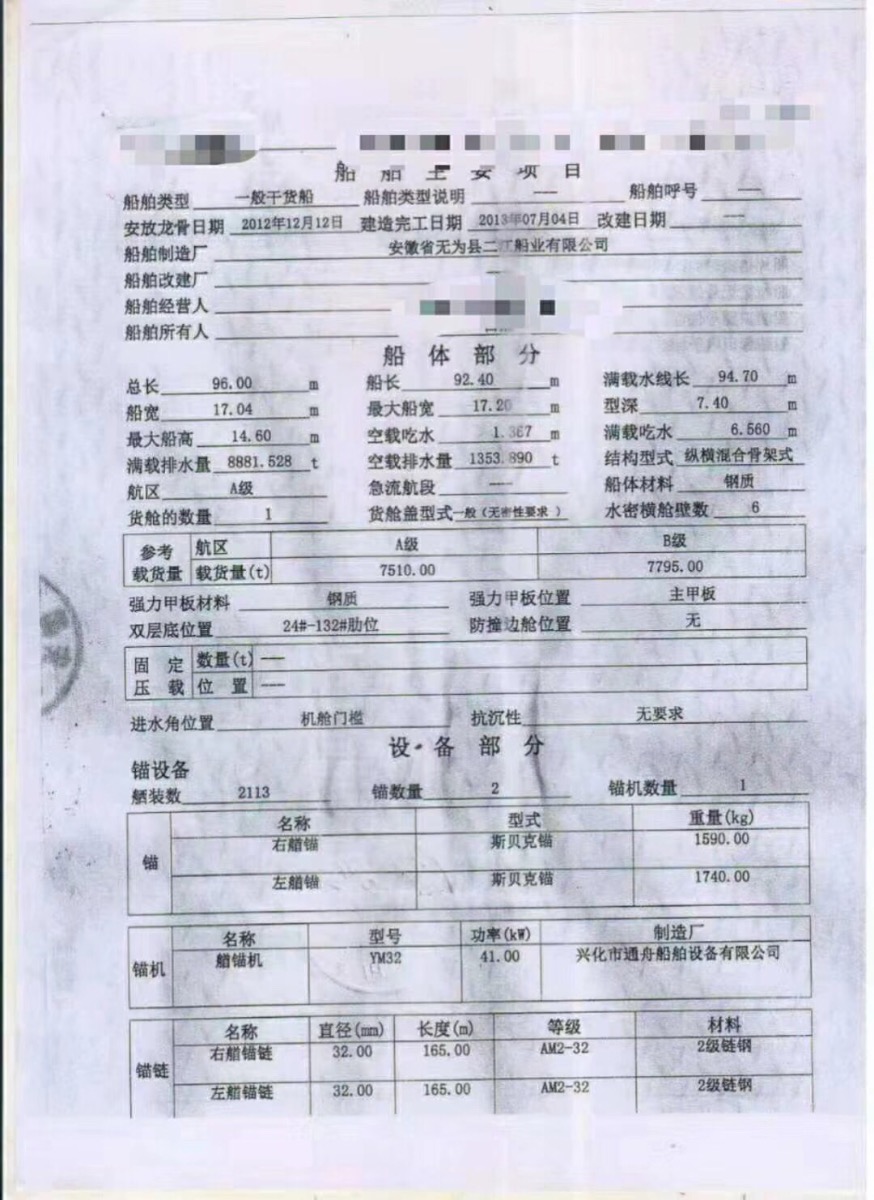 船舶主要项目
船舶类型 一般干货船 船舶类型说明 --- 船舶呼号 ---
安放龙骨日期 2012年12月12日 建造完工日期 2013年07月04日 改建日期 ---
船舶制造厂 安徽省无为县二江船业有限公司
船舶改建厂 ---
船舶经营人
船舶所有人
船体部分
总长 96.00 m 船长 92.40 m 满载水线长 94.70 m
船宽 17.04 m 最大船宽 17.20 m 型深 7.40 m
最大船高 14.60 m 空载吃水 1.367 m 满载吃水 6.560 m
满载排水量 8881.528 t 空载排水量 1353.890 t 结构型式 纵横混合骨架式
航区 A级 急流航段 --- 船体材料 钢质
货舱的数量 1 货舱盖型式 一般(无密性要求 ) 水密横舱壁数 6
参考 航区 A级 B级
载货量 载货量(t) 7510.00 7795.00
强力甲板材料 钢质 强力甲板位置 主甲板
双层底位置 24#-132#肋位 防撞边舱位置 无
固定 数量(t) ---
压载 位置 ---
进水角位置 机舱门槛 抗沉性 无要求
设备部分
锚设备
舾装数 2113 锚数量 2 锚机数量 1
锚 名称 型式 重量(kg)
右艏锚 斯贝克锚 1590.00
左艏锚 斯贝克锚 1740.00
锚机 名称 型号 功率(kW) 制造厂
艏锚机 YM32 41.00 兴化市通舟船舶设备有限公司
锚链 名称 直径(mm) 长度(m) 等级 材料
右艏锚链 32.00 165.00 AM2-32 2级链钢
左艏锚链 32.00 165.00 AM2-32 2级链钢